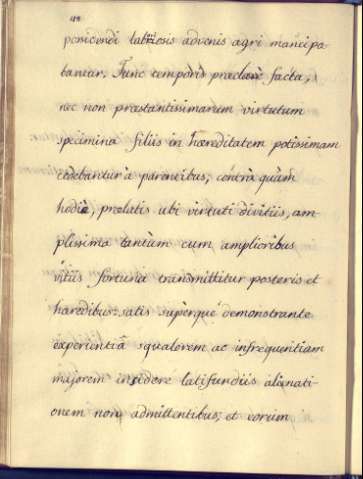 perscondi laboriosis advenis agri mancipa
bantur. Tunc temporis praeclare facta,
nec non praestantissimarum virtutum
specimina filiis in haereditatem potissimam
cedebantur à parentibus, contrà quàm
hodie, praelatis ubi virtuti divitiis, am
plissima tantùm cum amplioribus
vitiis fortuna transmittitur posteris et
haredibus: satis supèrque demonstrante
experientiâ squalorem ac infrequentiam
majorem insidere latifundiis alienati-
onem non admittentibus; et eorum